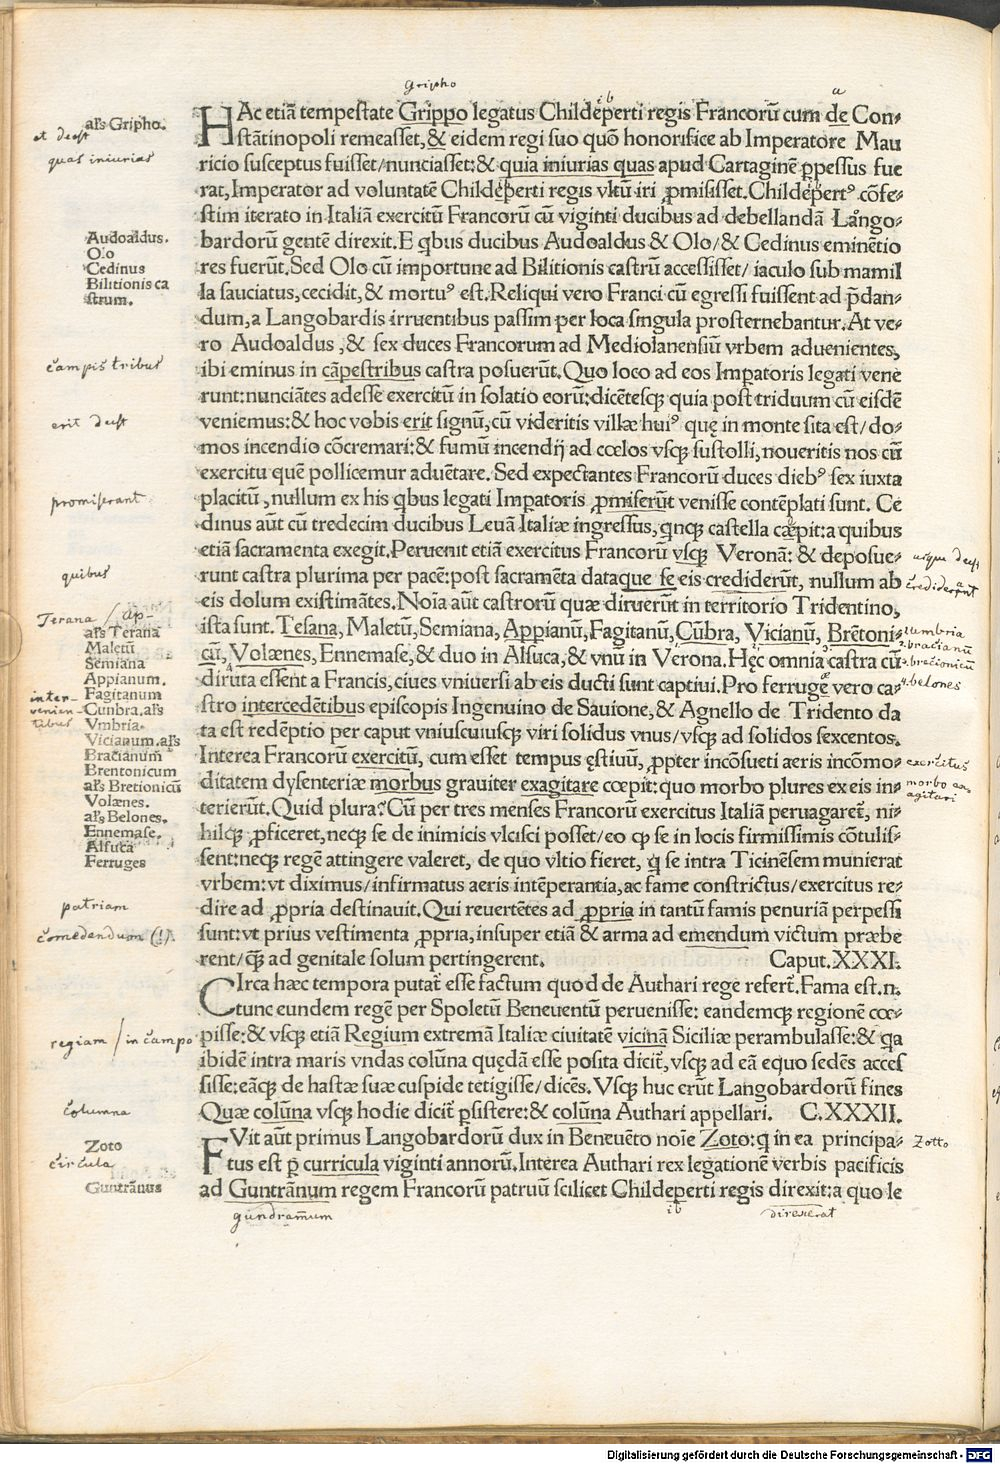 Gripho
ib
a
HAc etiā tempestate Grippo legatus Childeperti regis Francorū cum de Con⸗
stātinopoli remeasset, & eidem regi suo quō honorifice ab Imperatore Mau
ricio susceptus fuisset/nunciasset: & quia iniurias quas apud Cartaginē ꝑpessus fue
rat, Imperator ad voluntatē Childeperti regis vltū iri ꝓmisisset. Childepertꝰ cōfe⸗
stim iterato in Italiā exercitū Francorū cū viginti ducibus ad debellandā Lāngo⸗
bardorū gentē direxit. E q̇bus ducibus Audoaldus & Olo/& Cedinus eminētio
res fuerūt. Sed Olo cū importune ad Bilitionis castrū accessisset/ iaculo sub mamil
la sauciatus, cecidit, & mortuꝰ est. Reliqui vero Franci cū egressi fuissent ad p̄dan⸗
dum, a Langobardis irruentibus passim per loca singula prosternebantur. At ve⸗
ro Audoaldus, & sex duces Francorum ad Mediolanensiū vrbem aduenientes,
ibi eminus in cāpestribus castra posuerūt. Quo loco ad eos Imꝑatoris legati vene
runt: nunciātes adesse exercitū in solatio eorū: dicētesqꝫ quia post triduum cū eisdē
veniemus: & hoc vobis erit signū, cū videritis villæ huiꝰ quę in monte sita est/do⸗
mos incendio cōcremari: & fumū incendij ad cœlos vsqꝫ sustolli, noueritis nos cū
exercitu quē pollicemur aduētare. Sed expectantes Francorū duces diebꝰ sex iuxta
placitū, nullum ex his q̇bus legati Imꝑatoris ꝓmiserūt venisse contēplati sunt. Ce
dinus aūt cū tredecim ducibus Leuā Italiæ ingressus, q̇nqꝫ castella cæpit: a quibus
etiā sacramenta exegit. Peruenit etiā exercitus Francorū vsqꝫ Veronā: & deposue⸗
runt castra plurima per pacē: post sacramēta dataque se eis crediderūt, nullum ab
eis dolum existimātes. Noīa aūt castrorū quæ diruerūt in territorio Tridentino,
ista sunt. Tesana, Maletū, Semiana, Appianū, Fagitanū, Cūbra, Vicianū, Brētoni⸗
cū, Volænes, Ennemase, & duo in Alsuca, & vnū in Verona. Hęc omnia castra cū
diruta essent a Francis, ciues vniuersi ab eis ducti sunt captiui. Pro ferruge vero ca⸗
stro intercedētibus episcopis Ingenuino de Sauione, & Agnello de Tridento da
ta est redēptio per caput vniuscuiusqꝫ viri solidus vnus/vsqꝫ ad solidos sexcentos.
Interea Francorū exercitū, cum esset tempus ęstiuū, ꝓpter incōsueti æris incōmo⸗
ditatem dysenteriæ morbus grauiter exagitare cœpit: quo morbo plures ex eis in⸗
terierūt. Quid plura? Cū per tres menses Francorū exercitus Italiā peruagaret, ni⸗
hilqꝫ ꝓficeret, neqꝫ se de inimicis vlcisci posset/eo qꝫ se in locis firmissimis cōtulis⸗
sent: neqꝫ regē attingere valeret, de quo vltio fieret, q̇ se intra Ticinēsem munierat
vrbem: vt diximus/infirmatus aeris intēperantia, ac fame constrictus/exercitus re⸗
dire ad ꝓpria destinauit. Qui reuertētes ad ꝓpria in tantū famis penuriā perpessi
sunt: vt prius vestimenta ꝓpria, insuper etiā & arma ad emendum victum præbe
rent/qꝫ ad genitale solum pertingerent. Caput. XXXI.
CIrca hæc tempora putat̄ esse factum quod de Authari rege refert̄. Fama est. n.
tunc eundem regē per Spoletū Beneuentū peruenisse: eandemqꝫ regionē cœ⸗
pisse: & vsqꝫ etiā Regium extremā Italiæ ciuitatē vicinā Siciliæ perambulasse: & qa
ibidē intra maris vndas colūna quędā esse posita dicit̄, vsqꝫ ad eā equo sedēs acces
sisse: eāqꝫ de hastæ suæ cuspide tetigisse/dicēs. Vsqꝫ huc erūt Langobardorū fines
Quæ colūna vsqꝫ hodie dicit̄ ꝑsistere: & colūna Authari appellari. C. XXXII.
FVit aūt primus Langobardorū dux in Beneuēto noīe Zoto: q̇ in ea principa⸗
tus est ꝑ curricula viginti annorū. Interea Authari rex legationē verbis pacificis
ad Guntrānum regem Francorū patruū scilicet Childeperti regis direxit: a quo le
gundram̄um
ib
direxerat
al's Gripho.
et deest
quas iniurias
Audoaldus.
Olo
Cedinus
Bilitionis ca
strum.
campis tribus
erit deest
promiserant
quibus
Terana / ap-
al's Terana
Maletū
Semiana
Appianum.
Fagitanum
inter-
venien-
tibus
Cunbra, al's
Vmbria.
Vicianum. al's
Bracianum
Brentonicum
al's Bretionicū
Volænes.
al's Belones.
Ennemase.
Alsuca
Ferruges
patriam
comedendum (!).
regiam / in campo
columna
Zoto
circula
Guntrānus
usque deest
crediderant
1. umbria
2. bracianū
3. bretionicū
4. belones
exercitus
morbo ex-
agitari
Zotto
Digitalisierung gefördert durch die Deutsche Forschungsgemeinschaft - DFG